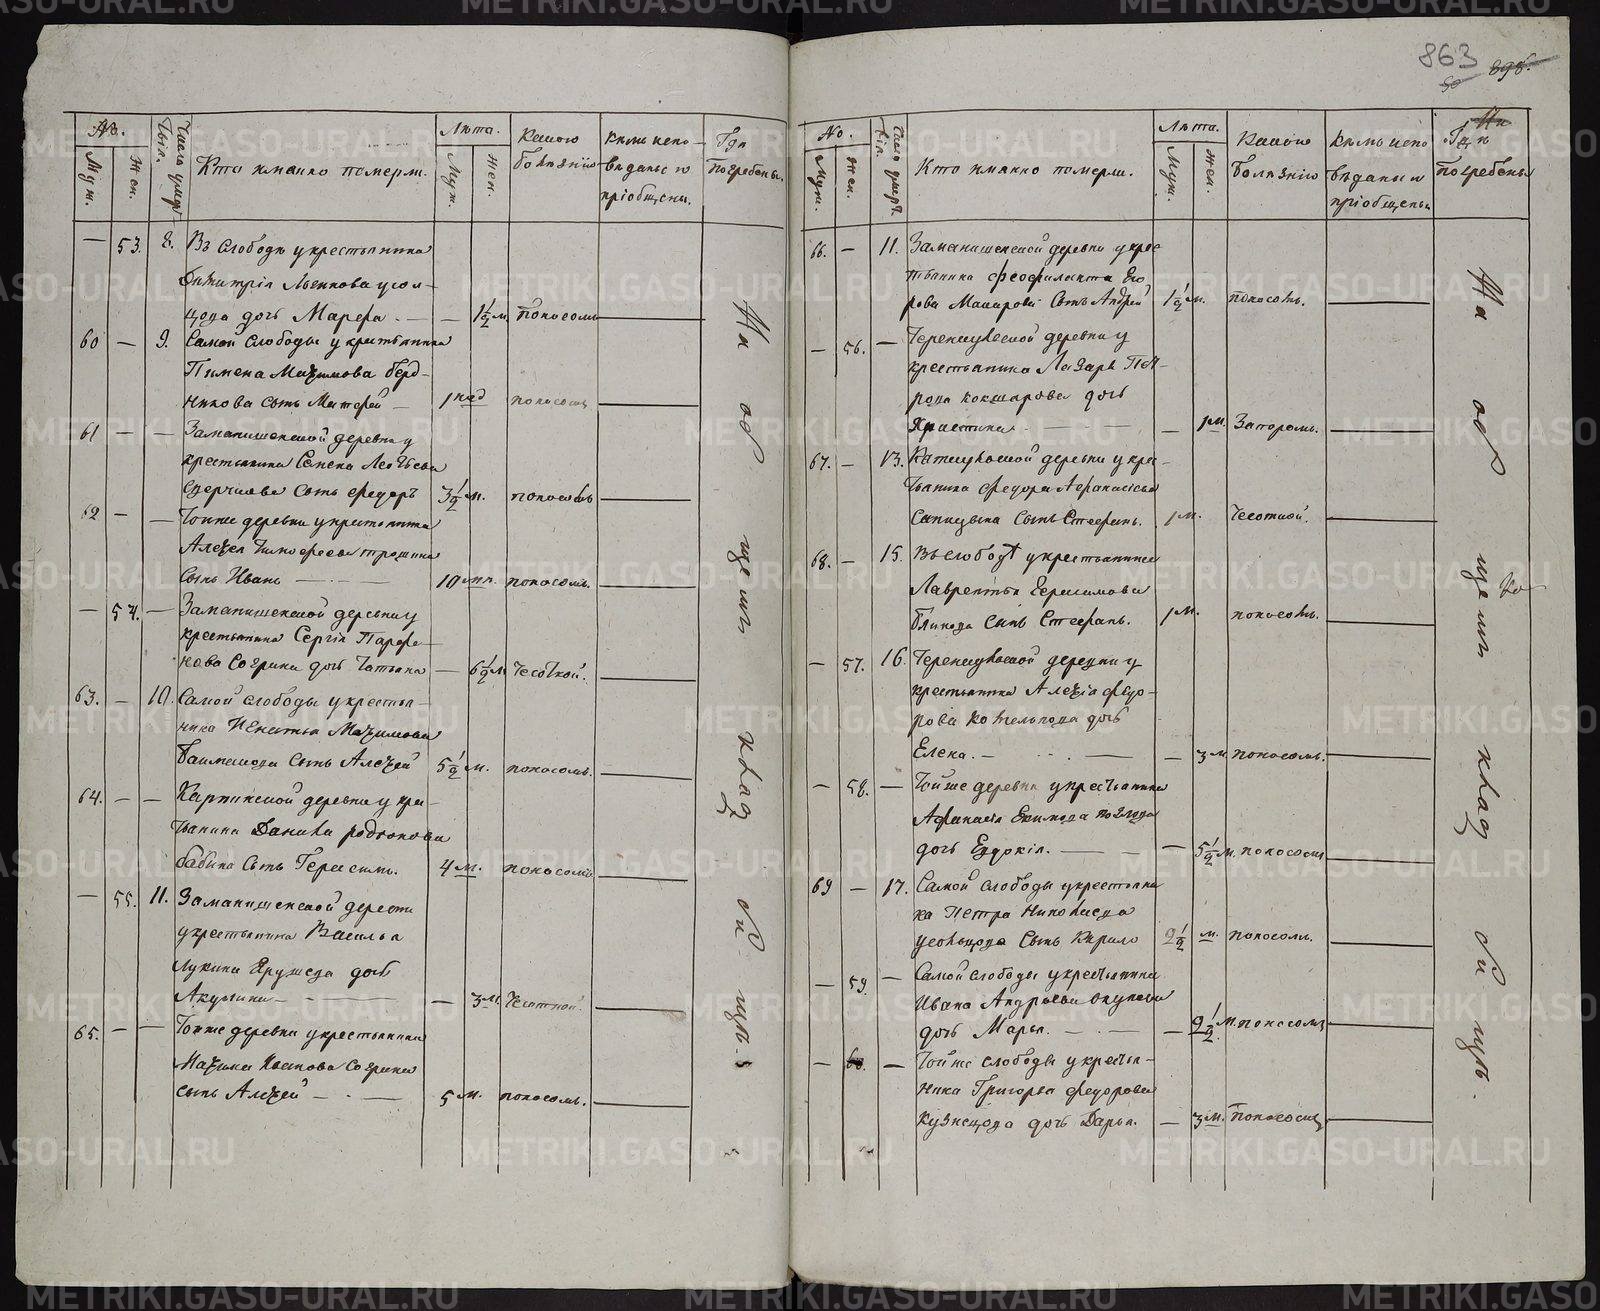 863
895.
50
№.
Муж.
Жен.
Число умер-
шихъ.
Кто имянно померли.
Лѣта.
Муж.
Жен.
Какою
болѣзнiю
Кѣмъ испо-
вѣданы и
прiобщены.
Гдѣ
погребены.
— 53. 8. Въ слободѣ у крестьянина
Димитрiя
дочь Марѳа — — 1½ м. поносомъ
60 — 9. Самой слободы у крестьянина
Пимена Маѯимова Берд-
никова сынъ Матѳей — 1 нед поносомъ
61 — — Заманишенской деревни у
крестьянина Семена Леѡтьева
сынъ Ѳедоръ 3½ м. поносомъ
62 — — Тойже деревни у крестьянина
Алеѯея Тимоѳеева Трошина
сынъ Иванъ — 10 поносомъ.
— 54. — Заманишенской деревни у
крестьянина Сергiя Парѳе-
нова Согрина дочь Татьяна — 6½ м чесоткой.
63. — 10. Самой слободы у крестья-
нина Игнатья Маѯимова
сынъ Алеѯей 5½ м. поносомъ.
64. — — деревни у кре-
стьянина Данила Родiонова
Бабина сынъ Герасимъ. 4 м. поносомъ
— 55. 11. Заманишенской деревни
у крестьянина Василья
Лукина дочь
Акулина — — 3 м. чесоткой.
65. — — Тойже деревни у крестьянина
Маѯима Иванова Согрина
сынъ Алеѯей — 5 м. поносомъ.
На об
щемъ
клад
би
щѣ.
№.
Муж.
Жен.
Число умер.
Кто имянно померли.
Лѣта.
Муж.
Жен.
Какою
болѣзнiю
Кѣмъ испо
вѣданы и
прiобщены
Гдѣ
погребены
66. — 11. Заманишенской деревни у кре
стьянина Ѳеоѳилакта Его
рова Макарова сынъ Андрей 1½ м. поносомъ.
— 56. — деревни у
крестьянина Лазаря Пет
рова Кокшарова дочь
Христина — — 1 м. Запоромъ.
67. — 13. деревни у кре-
стьянина Ѳедора Аѳанасьева
сынъ Стеѳанъ. 1 м. чесоткой.
68. — 15. Въ слободѣ у крестьянина
Лаврентья Герасимова
Блинова сынъ Стеѳанъ. 1 м. поносомъ.
— 57. 16. деревни у
крестьянина Алеѯiя Ѳедо-
рова Котельнова дочь
Елена. — — 3 м. поносомъ.
— 58. — Тойже деревни у крестьянина
Аѳанасiя Екимова
дочь Евдокiя. — — 5½ м. поносомъ
69 — 17. Самой слободы у крестьяни
на Петра Николаева
сынъ Кирило 2½ м. поносомъ.
— 59. — Самой слободы у крестьянина
Ивана Андреева Окулова
дочь Марья. — — 2½ м. поносомъ
— 60. — Тойже слободы у крестья-
нина Григорья Ѳедорова
Кузнецова дочь Дарья. — 3 м. поносомъ
На об
щемъ
клад
би
щѣ.
METRIKI.GASO-URAL.RU